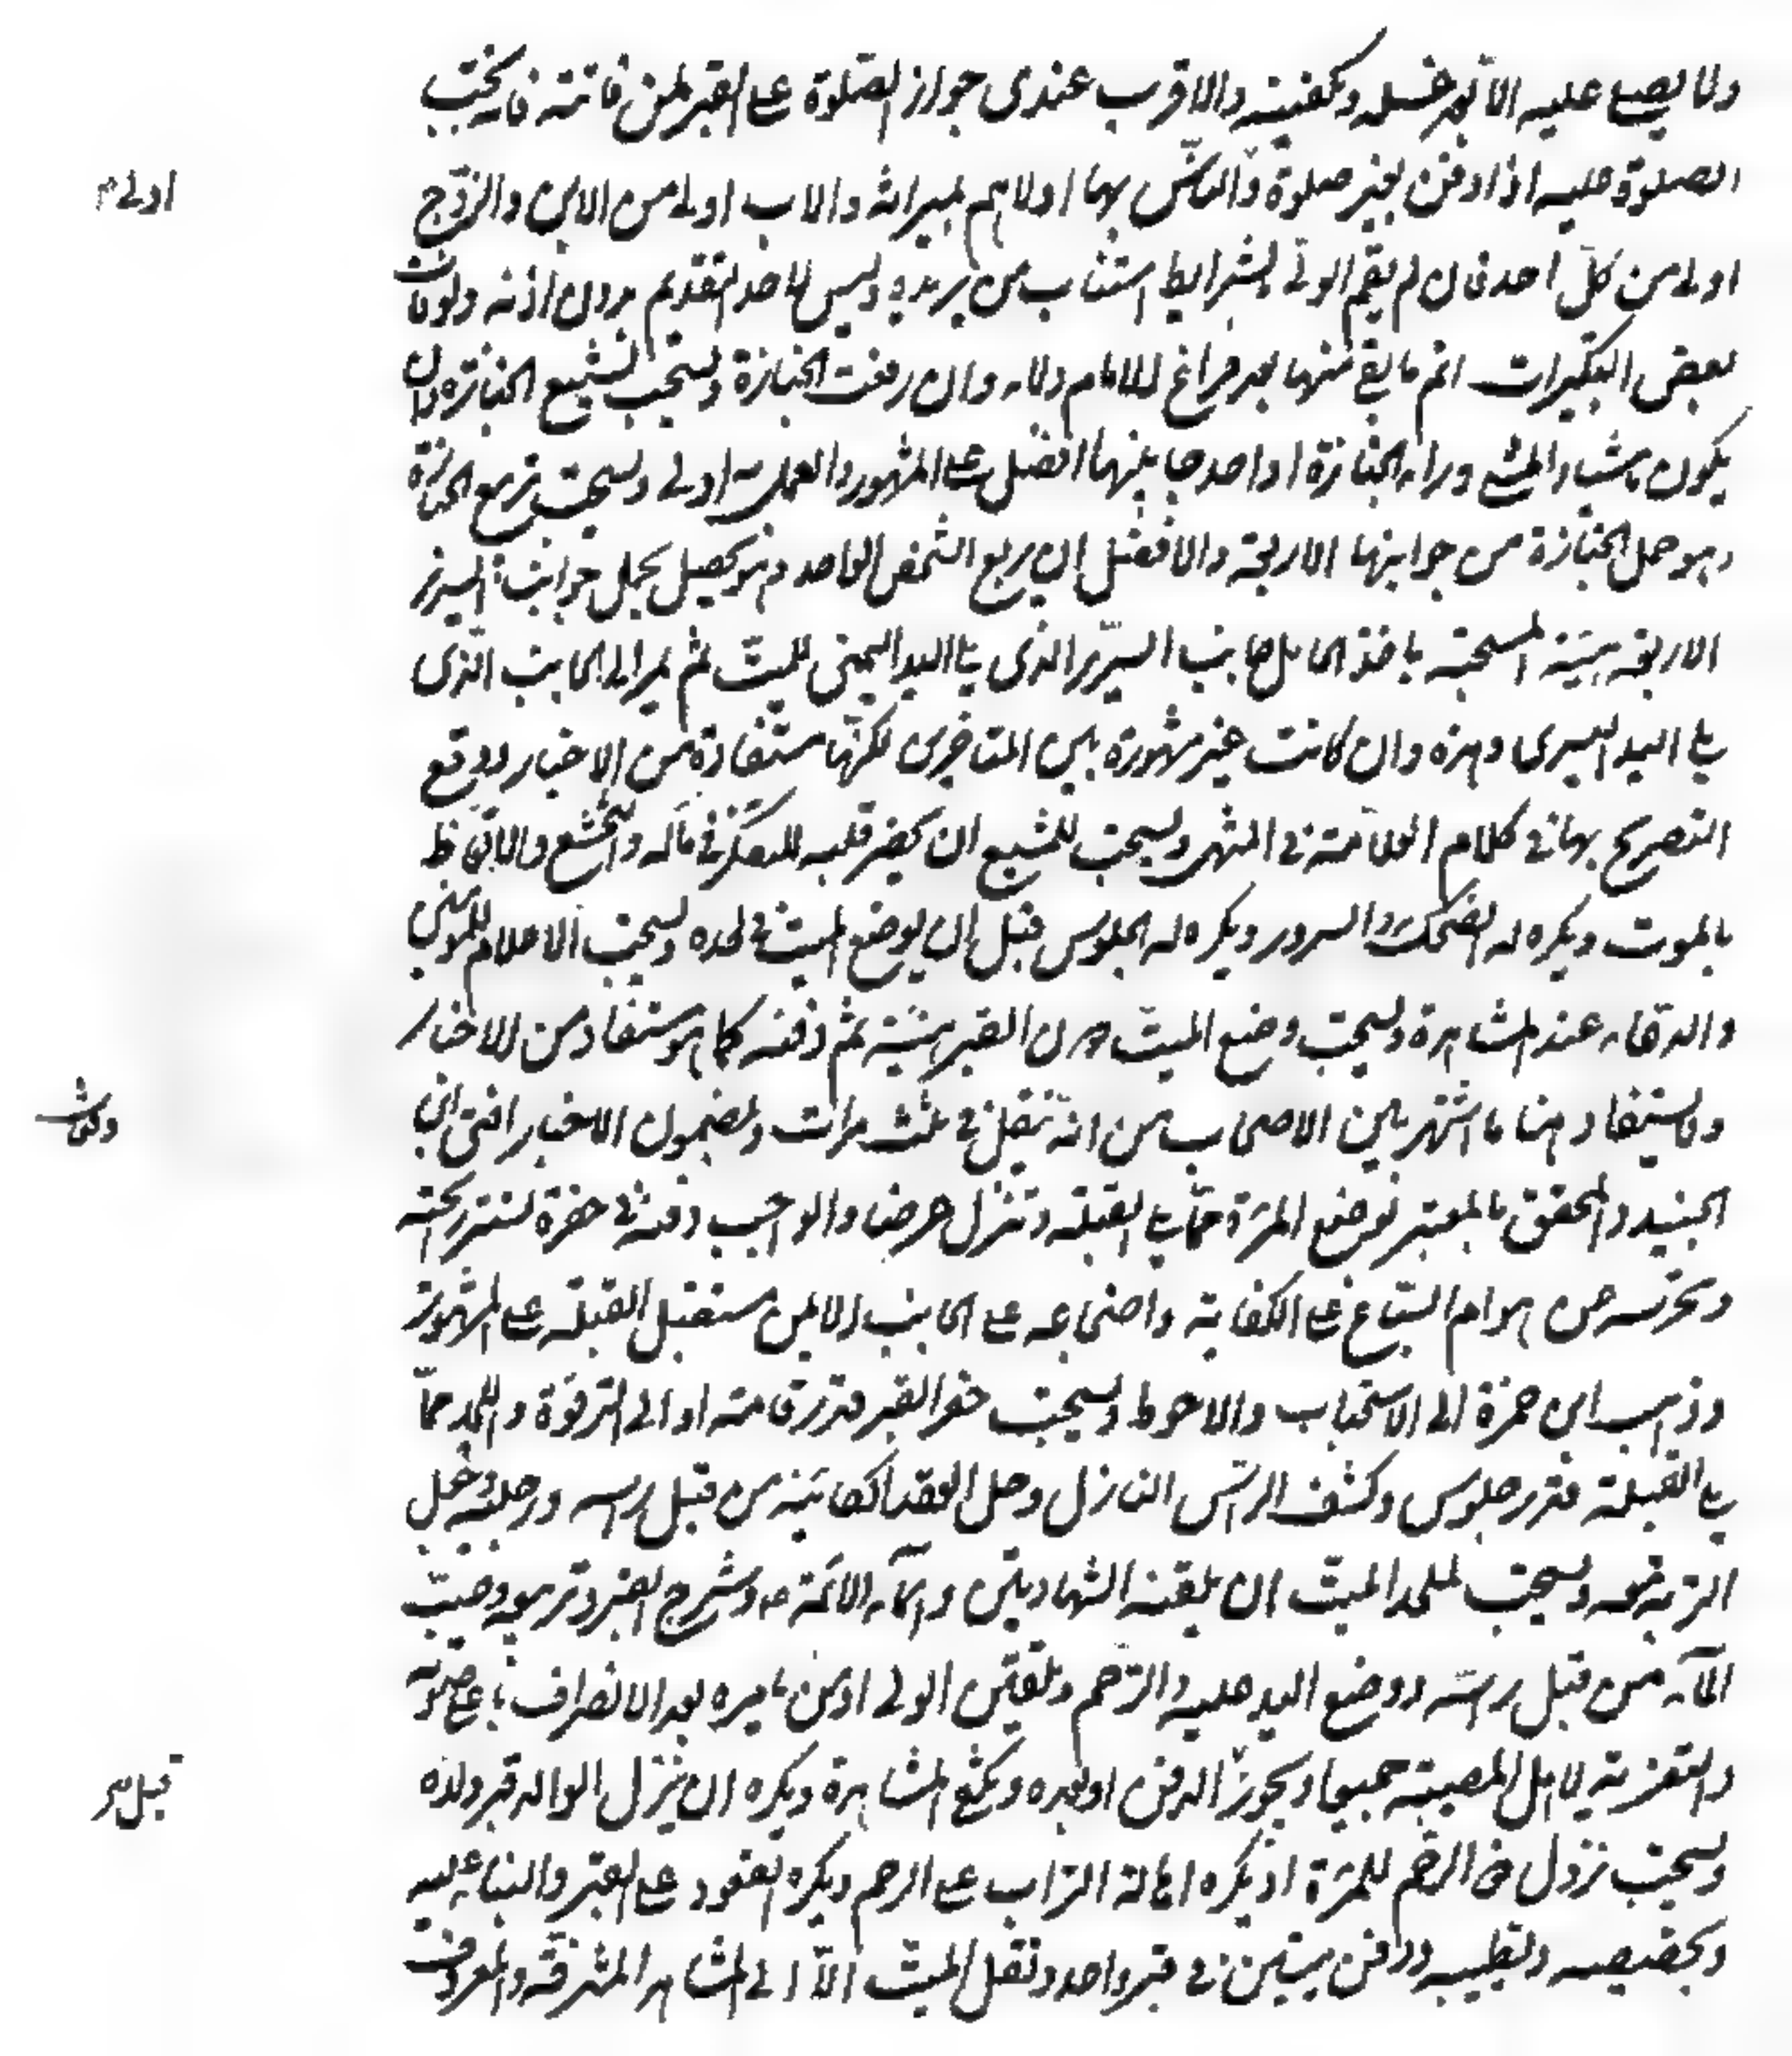 ولا يصلى عليه الا بعد غسله وتكفينه والاقرب عندى جواز الصلوة على القبر لمن فاتته فايجب
الصلوة عليه اذا دفن بغير صلوة والناس بها اولاهم بميراثه والاب اولى من الابن والزوج
اولى م
اولى من كل احد فان لم يقم الولى بشرايط استناب من يريده وليس لاحد التقديم بدون اذنه ولو فات
بعض التكبيرات اتم ما بقى منها بعد فراغ الامام ولاء وان رفعت الجنازة ويستحب تشييع الجنازة وان
يكون ماشيا والمشى وراء الجنازة او احد جانبيها افضل على المشهور والعمل به اولى ويستحب تربيع الجنازة
وهو حمل الجنازة من جوانبها الاربعة والافضل ان يربع الشخص الواحد وهو يحصل بحمل جوانب السرير
الاربعة بهيئة المستحبة ياخذ الحامل جانب السرير الذى يلى اليد اليمنى للميت ثم يمر الى الجانب الذى
يلى اليد اليسرى وهذه وان كانت غير مشهورة بين المتاخرين لكنها مستفادة من الاخبار ووقع
التصريح بها فى كلام العلامة فى المنتهى ويستحب للمشيع ان يحضر قلبه للتفكر فى مآله والتخشع والاتعاظ
بالموت ويكره له الضحك والسرور ويكره له الجلوس قبل ان يوضع الميت فى لحده ويستحب الاعلام للمؤمنين
والدعاء عند المشاهدة ويستحب وضع الميت دون القبر هنيئة ثم دفنه كما هو مستفاد من الاخبار
ولا يستفاد منها ما اشتهر بين الاصحاب من انه ينقل فى ثلث مرات وبمضمون الاخبار افتى ابن
الجنيد والمحقق بالمعتبر توضع المرءة مما يلى القبلة وتنزل عرضا والواجب دفنه فى حفرة تستر ريحته
وتحرسه من هوام السباع على الكفاية واضجاعه على الجانب الايمن مستقبل القبلة على المشهور
وذهب ابن حمزة الى الاستحباب والاحوط ويستحب حفر القبر قدر قامة او الى الترقوة واللحد مما
يلى القبلة قدر جلوس وكشف الراس النازل وحل العقد اكفانه من قبل راسه ورجليه وجعل
التربة معه ويستحب لملحد الميت ان يلقنه الشهادتين واسماء الائمة ع وشرج القبر وتربيعه وصب
الماء من قبل راسه ووضع اليد عليه والترحم وتلقين الولى او من يامره بعد الانصراف باعلى صوته
والتعزية لاهل المصيبة جميعا ويجوز الدفن او بعده ويكفى المشاهدة ويكره ان ينزل الوالد قبر ولده
قبل
ويستحب نزول ذى الرحم للمرءة او يكره اهالة التراب على الرحم ويكره القعود على القبر والبناء عليه
وتجصيصه وتطيينه ودفن ميتين فى قبر واحد ونقل الميت الا الى المشاهد المشرفة والمعروف